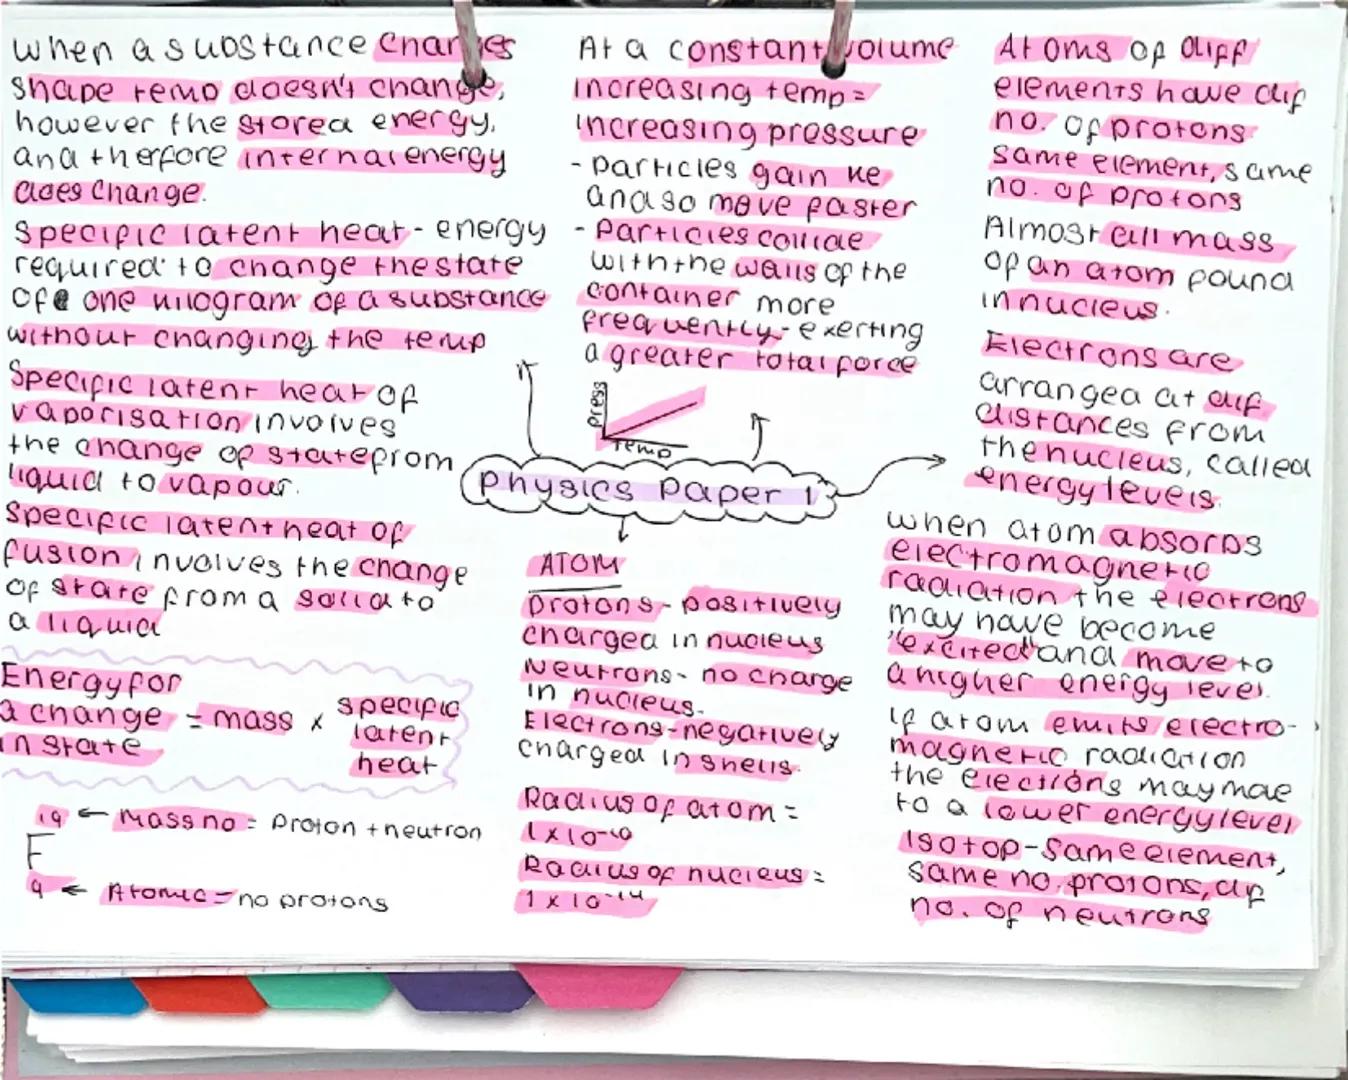 When a substance changes
shape temp doesn't change,
however the stored energy,
and therfore internal energy
does change.
Specific latent heat - energy
required to change the state
of one kilogram of a substance
without changing the temp
Specific latent heat of
vaporisation involves
the change of state from
liquid to vapour.
Specific latent heat of
fusion involves the change
of state from a solid to
a liquid
Energy for
a change = mass × specific
in state latent
heat
19 ← Mass no = proton + neutron
F
9 ← Atomic = no protons
At a constant volume
increasing temp =
increasing pressure
- particles gain ke
and so move faster
- Particles collide
with the walls of the
container more
frequently - exerting
a greater total force
Press
Temp
Physics Paper 1
ATOM
protons - positively
charged in nucleus
Neutrons - no charge
in nucleus.
Electrons - negatively
charged in shells.
Radius of atom =
1 x 10⁻¹⁰
Radius of nucleus =
1 x 10⁻¹⁴
Atoms of diff
elements have dif
no. of protons
same element, same
no. of protons
Almost all mass
of an atom found
in nucleus.
Electrons are
arranged at dif
distances from
the nucleus, called
energy levels.
when atom absorbs
electromagnetic
radiation the electrons
may have become
"excited" and move to
a higher energy level.
If atom emits electro-
magnetic radiation
the electrons may moe
to a lower energy level
Isotop - same element,
same no. protons, dif
no. of neutrons